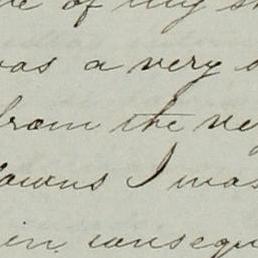 of my
was a very
from the ve
I was
in consequ